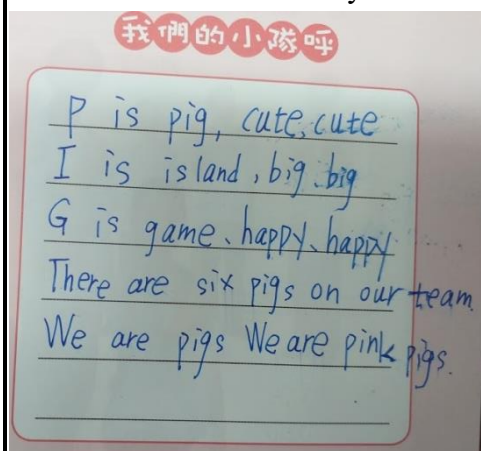 我們的小隊呼
P is pig, cute、cute
I is island，big、big
G is game、happy、happy
There are six pigs on our team.
We are pigs We are pink pigs.